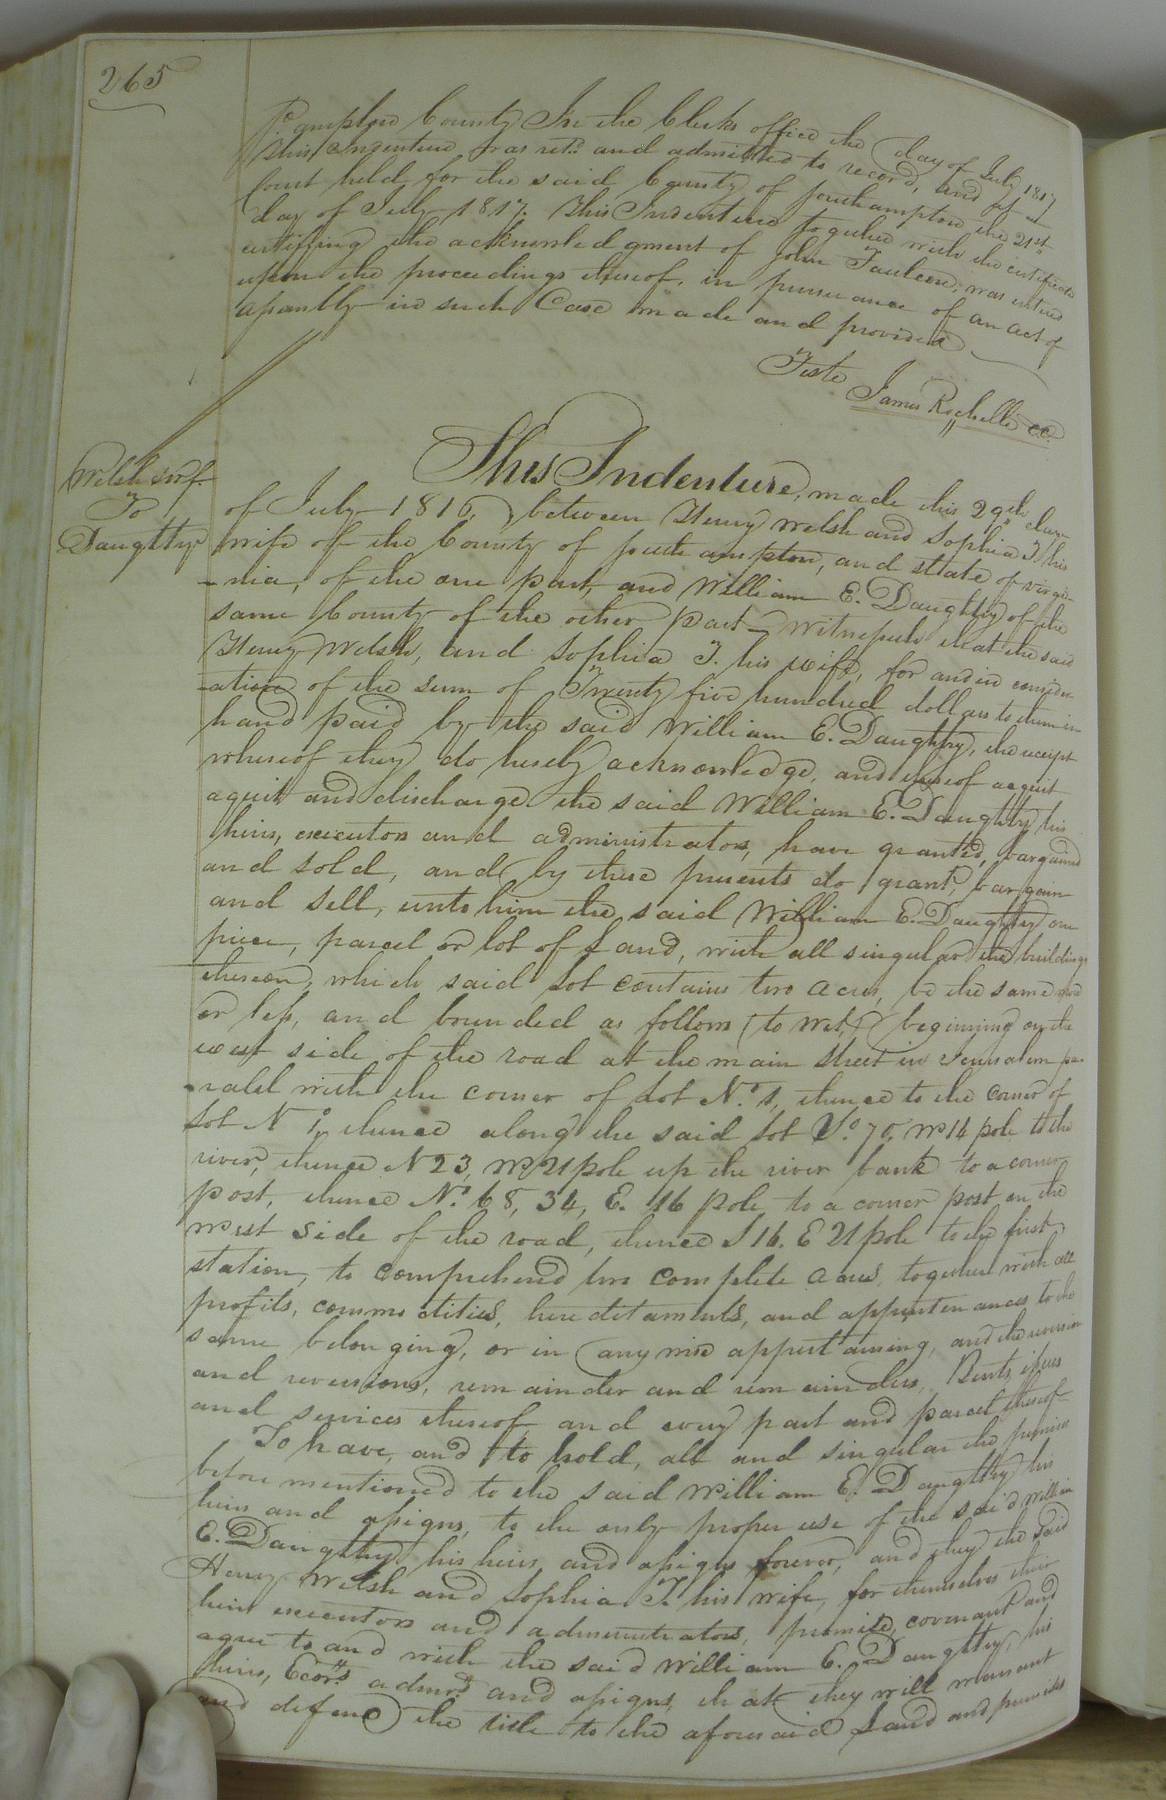 265
Southampton County In the Clerks office the day of July 1817
This Indenture was retd. and admitted to record, and at a
Court held for the said County of Southampton the 21st
day of July 1817. This Indenture together with the certificate
certifying the acknowledgment of John Faulcon, was entered
upon the proceedings thereof, in pursuance of an act of
assembly in such Case made and provided
Teste
James Rochelle CC.
Welsh & wf.
To
Daughtry
This Indenture, made this 29th day
of July 1816, between Henry Welsh and Sophia T. his
wife of the County of Southampton, and state of virgi-
-nia, of the one part, and William E. Daughtry of the
same County of the other part Witnesseth that the said
Henry Welsh, and Sophia T. his wife, for and in consider-
-ation of the sum of Twenty five hundred dollars to them in
hand paid by the said William E. Daughtry, the receipt
whereof they do hereby acknowledge, and thereof acquit
aquit and discharge the said William E. Daughtry his
heirs, executors and administrators, have granted, bargained
and sold, and by these presents do grant, bargain
and sell, unto him the said William E. Daughtry one
piece, parcel or lot of Land, with all singular the buildings
thereon, which said lot contains two acres, be the same more
or less, and bounded as follows (to wit,) beginning on the
west side of the road at the main street in Jerusalem pa-
-ralel with the corner of Lot No. 1, thence to the corner of
Lot No 1, thence along the said lot So. 70, W 14 pole to the
river, thence N 23, W 21 pole up the river bank to a corner
post, thence No. 68, 34, E. 16 pole to a corner post on the
west side of the road, thence S 16. E 21 pole to the first
station, to comprehend two complete acres, together with all
profits, commodities, hereditaments, and appurtenances to the
same belonging, or in any wise appertaining, and the reversion
and reversions, remainder and remainders, Rents, issues
and services thereof and every part and parcel thereof
To have, and to hold, all and singular the premises
before mentioned to the said William E. Daughtry his
heirs and assigns, to the only proper use of the said William
E. Daughtry, his heirs, and assigns forever, and they the said
Henry Welsh and Sophia T. his wife, for themselves their
heirs executors and administrators, promise, covenant and
agree to and with the said William E. Daughtry, his
heirs, Ecors. admrs and assigns, that they will warrant
and defend the title to the aforesaid Land and premises